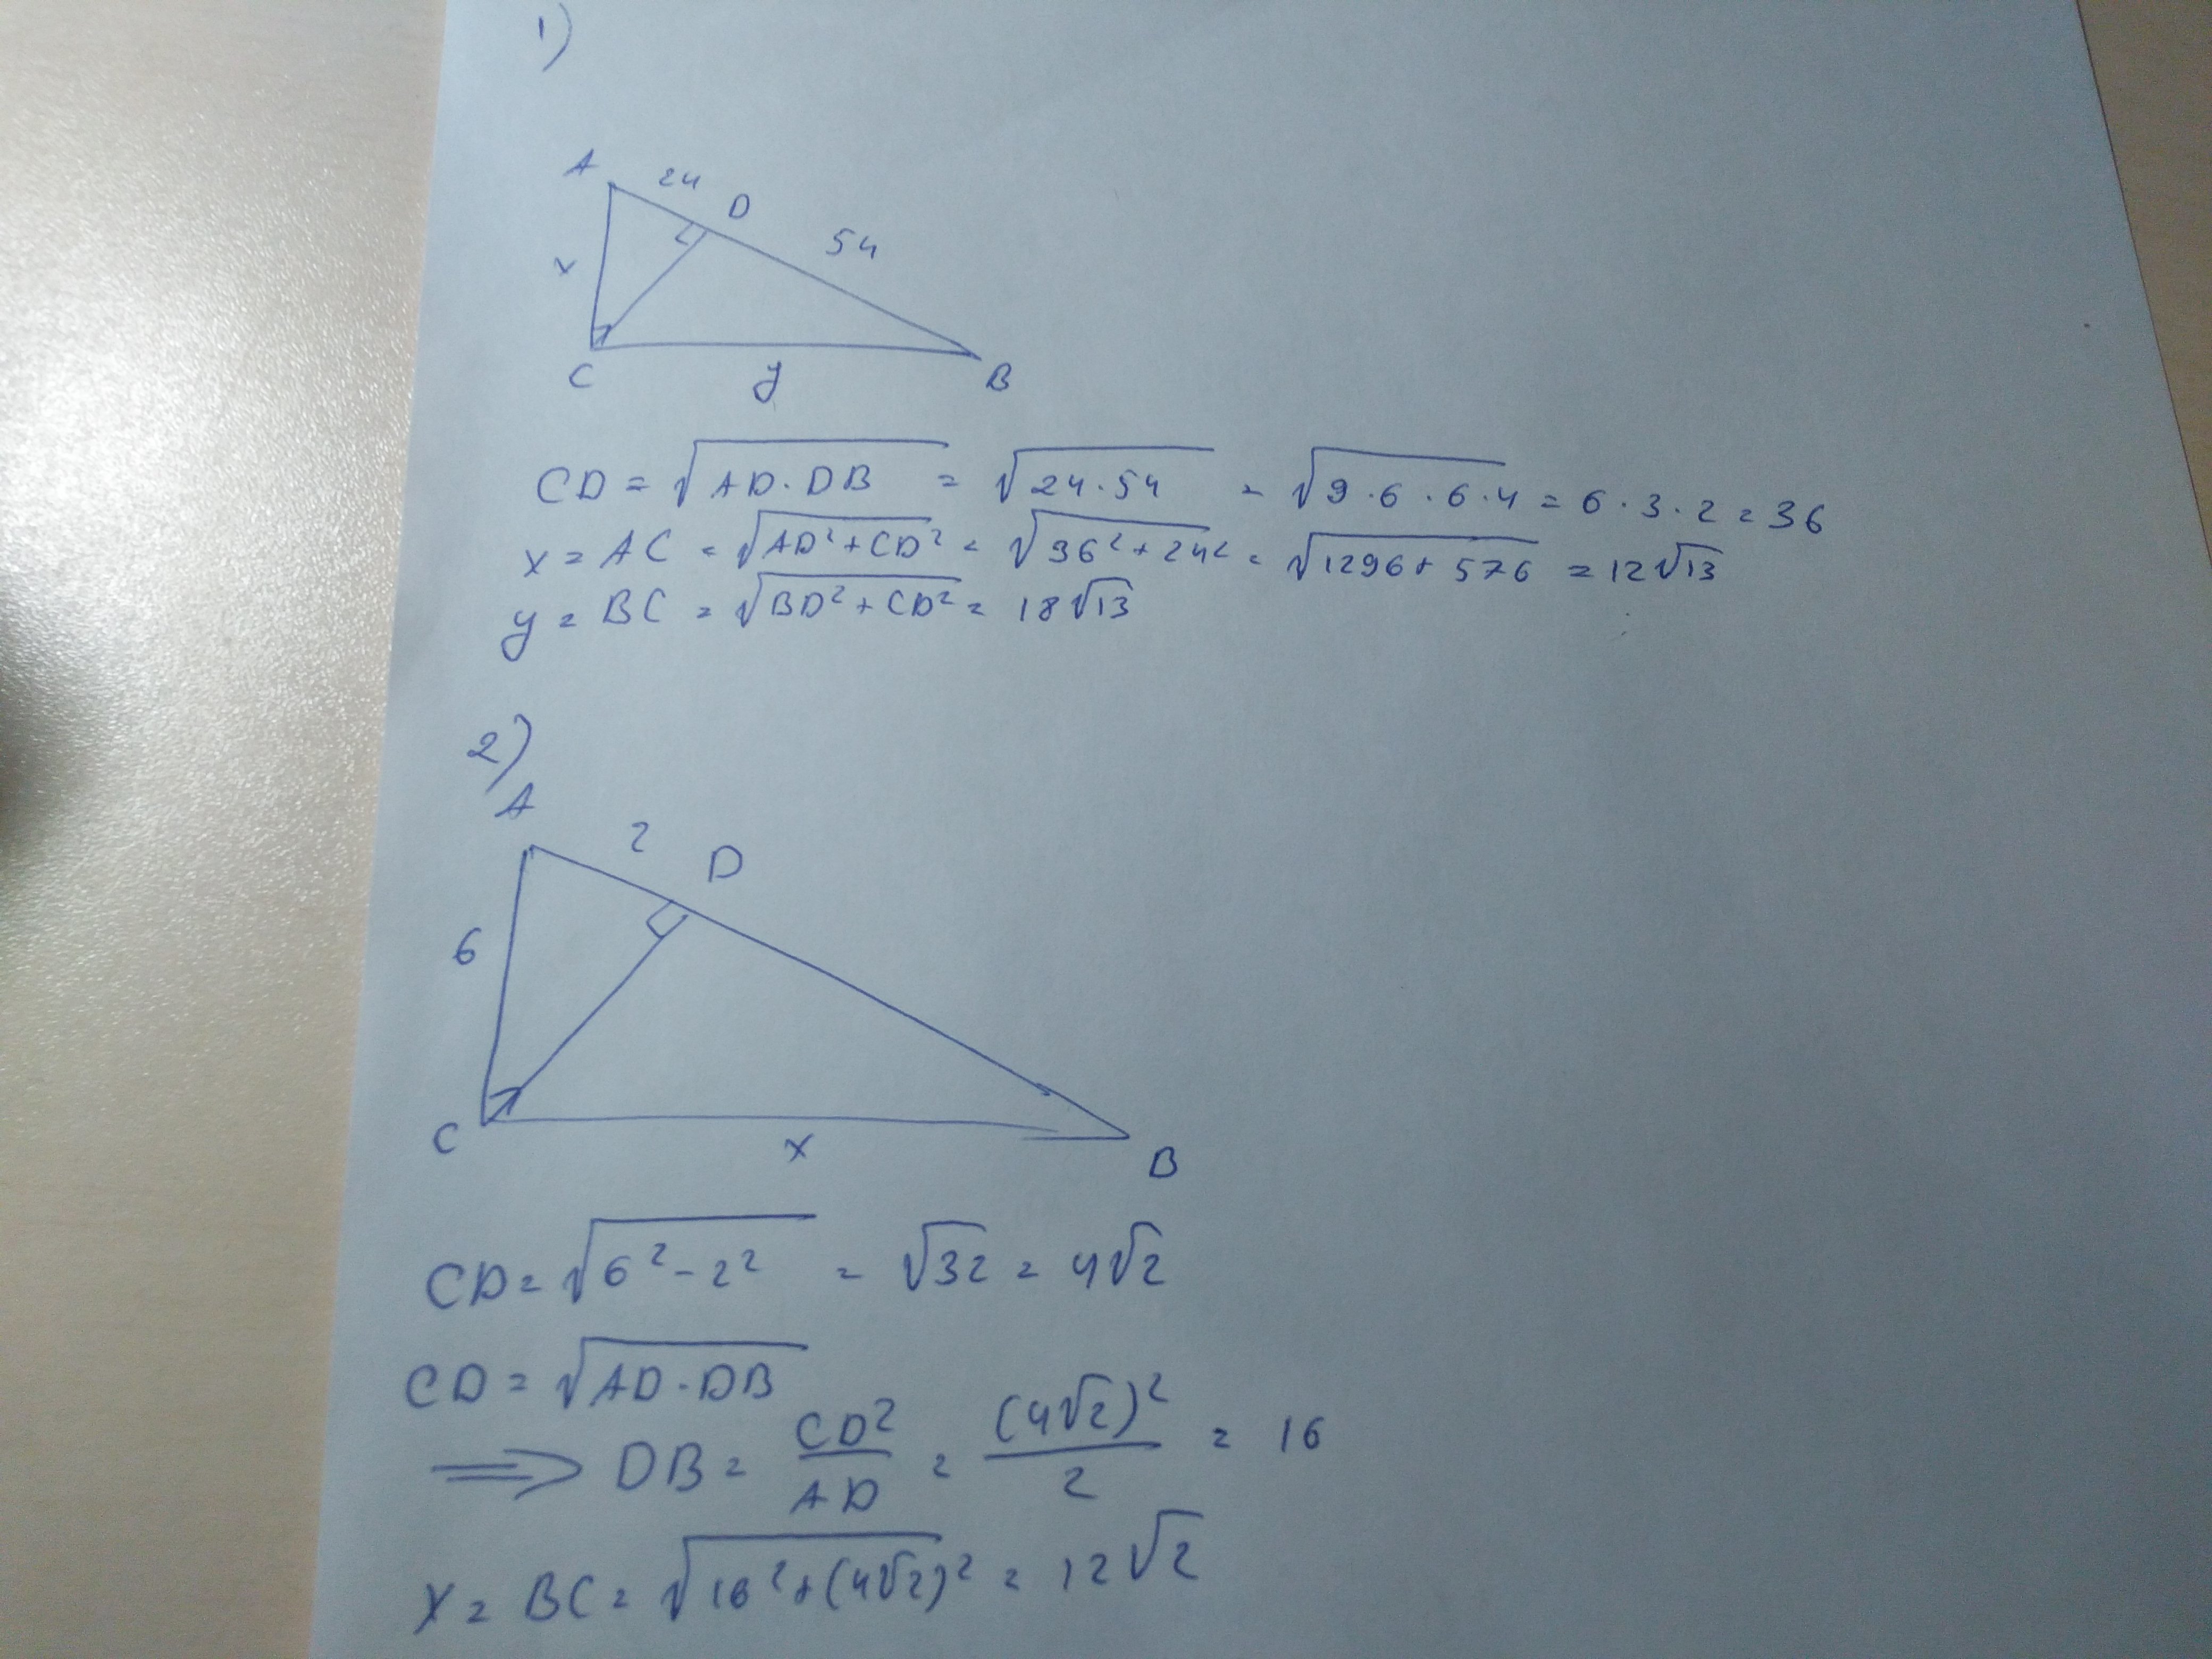 1)
A 24 D
54
x
C y B
CD = √(AD · DB) = √(24 · 54) = √(9 · 6 · 6 · 4) = 6 · 3 · 2 = 36
x = AC = √(AD² + CD²) = √(36² + 24²) = √(1296 + 576) = 12√13
y = BC = √(BD² + CD²) = 18√13
2)
A
2 D
6
C x B
CD = √(6² - 2²) = √32 = 4√2
CD = √(AD · DB)
⟹ DB = CD²/AD = (4√2)²/2 = 16
x = BC = √(16² + (4√2)²) = 12√2